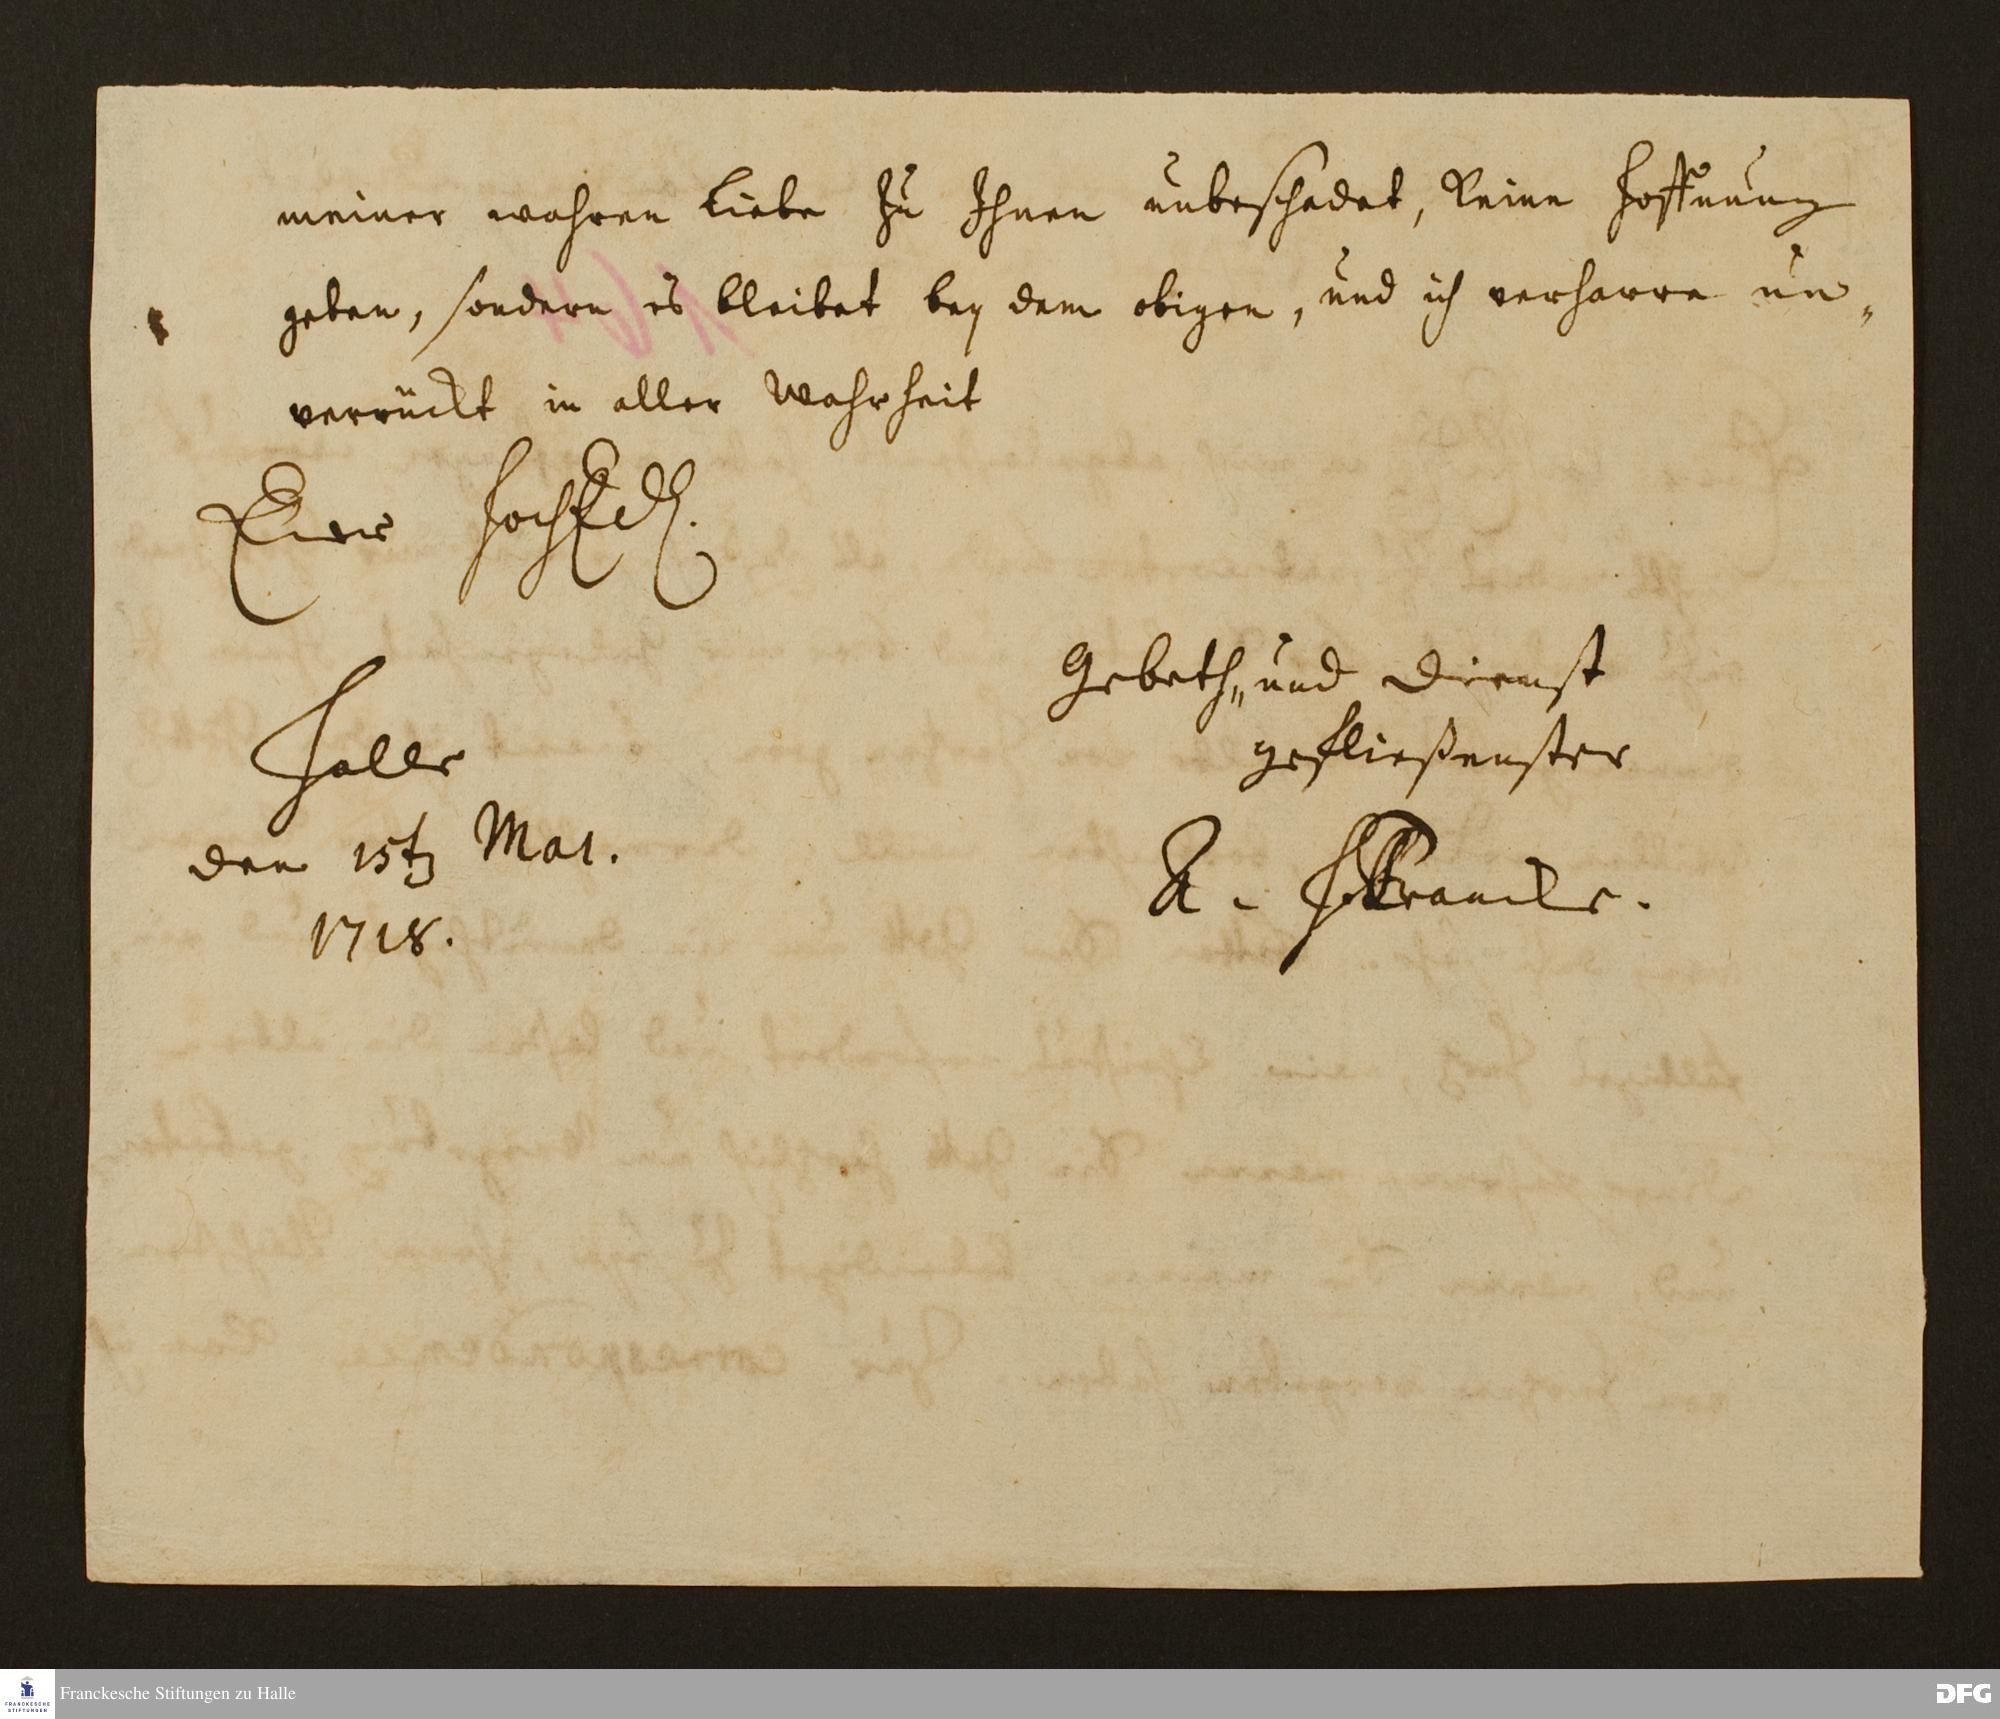 meiner wahren Liebe zu Ihnen unbeschadet, keine Hoffnung
geben, sondern es bleibet bey dem obigen, und ich verharre un„
verrückt in aller Wahrheit
Euer HochEdl.
Gebeth„ und Dienst
gefließenster
Halle
den 15t Mai.
1718.
A. H. Francke.
Franckesche Stiftungen zu Halle
FRANCKESCHE
STIFTUNGEN
DFG